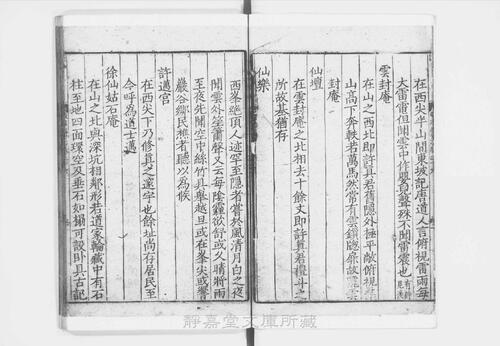 在西尖半山間東坡記唐道人言俯視雷雨每
大雷電但聞雲中作嬰兒聲殊不聞雷震也
雲封庵
在山之西北即許眞君舊隱外極平敞俯視
山高下奔軼若萬馬然常有雲鎖隐菴故
封庵
仙壇
在雲封庵之北相去十餘丈即許眞君禮斗之
所故基猶有
仙樂
西峯絶頂人迹罕至隱者嘗於風清月白之夜
聞雲外笙簫聲又云每陰雨欲舒或久晴將雨
至夜先聞空中絲竹具舉越旦或在峯尖或響
巖谷鄉民樵者聽以爲候
許邁宮
在西尖下乃修眞之遠字也餘址尚存居民至
今呼爲道士邁
徐仙姑石庵
在山之北與深坑相鄰形若道家輪藏中有石
柱至地四面環空及垂石如搨可設卧具古記
静嘉堂文庫所藏